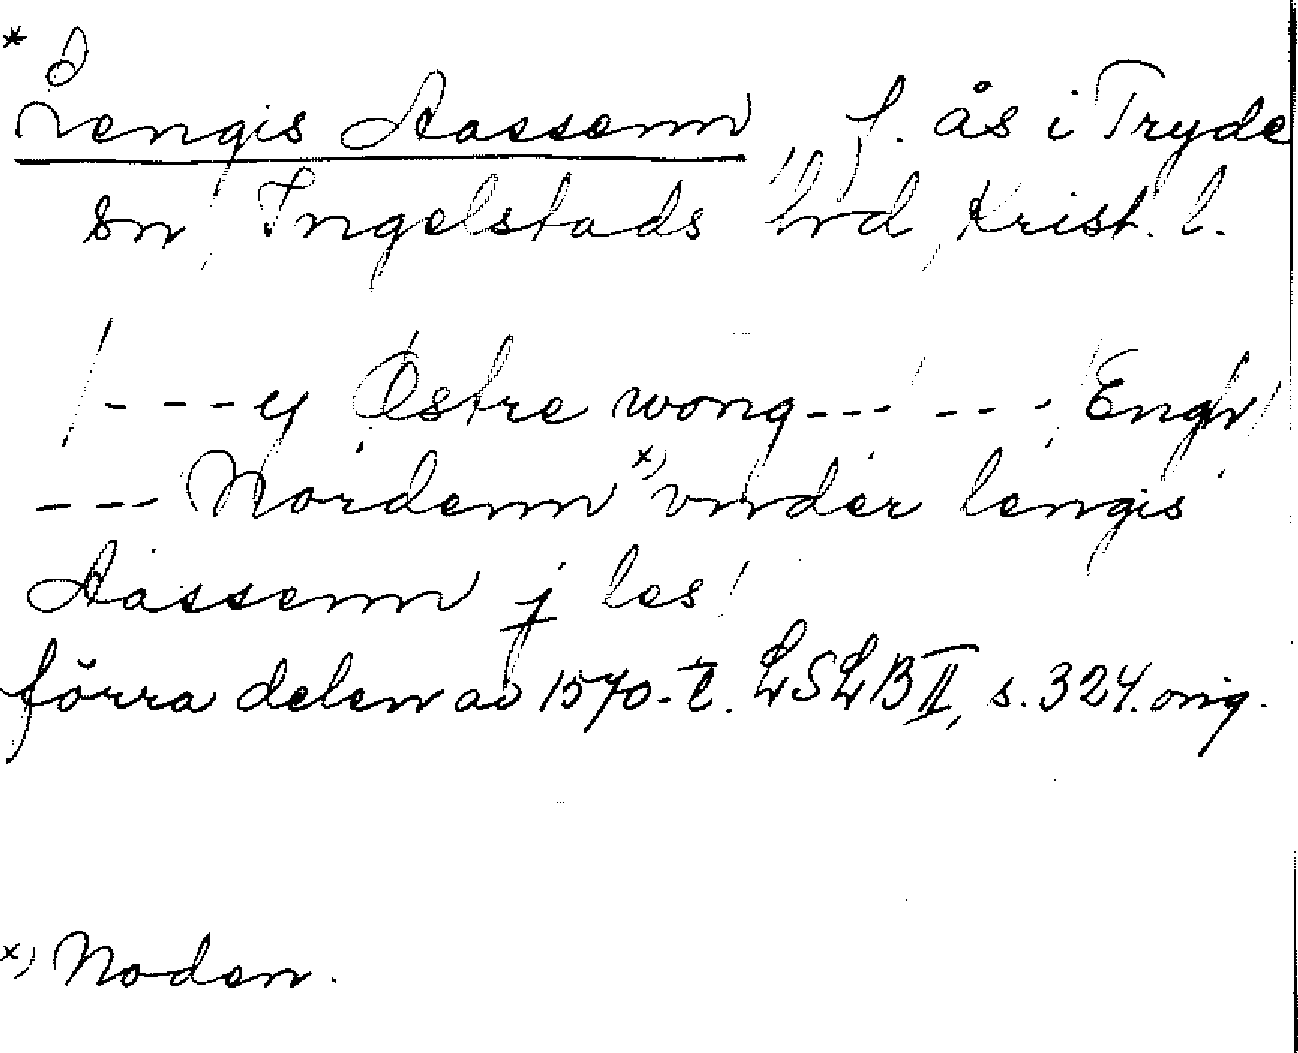 * Lengis Aassenn, f. ås i Tryde
sn, Ingelstads hrd, Krist. l.
/---y Östre wong--- --- Engh/
--- Nordenn x) vnder lengis
Aassenn j les/
förra delen av 1570-t. LSLB II, s. 324. orig.
x) Noden.